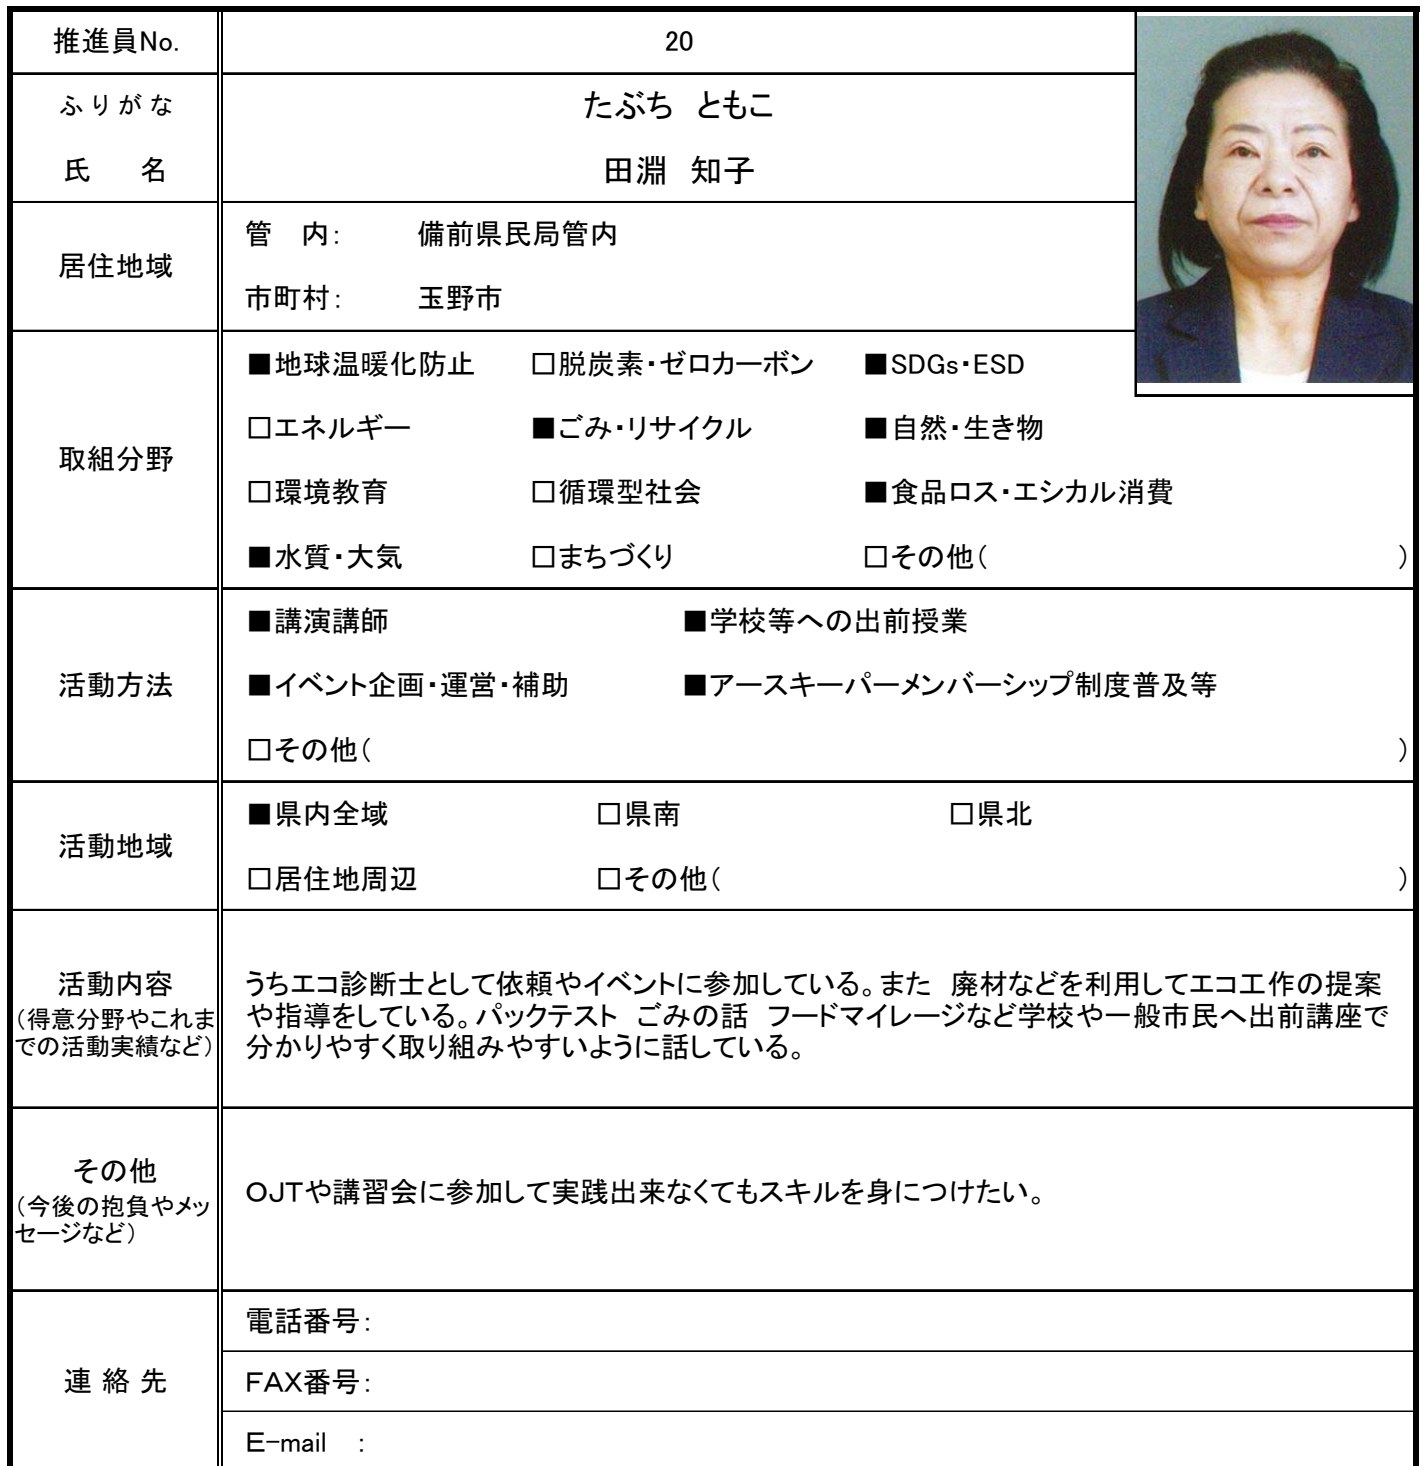 推進員No. 20
ふりがな たぶち ともこ
氏 名 田淵 知子
居住地域
管 内: 備前県民局管内
市町村: 玉野市
取組分野
■地球温暖化防止 □脱炭素・ゼロカーボン ■SDGs・ESD
□エネルギー ■ごみ・リサイクル ■自然・生き物
□環境教育 □循環型社会 ■食品ロス・エシカル消費
■水質・大気 □まちづくり □その他( )
活動方法
■講演講師 ■学校等への出前授業
■イベント企画・運営・補助 ■アースキーパーメンバーシップ制度普及等
□その他( )
活動地域
■県内全域 □県南 □県北
□居住地周辺 □その他( )
活動内容
(得意分野やこれま
での活動実績など)
うちエコ診断士として依頼やイベントに参加している。また 廃材などを利用してエコ工作の提案
や指導をしている。パックテスト ごみの話 フードマイレージなど学校や一般市民へ出前講座で
分かりやすく取り組みやすいように話している。
その他
(今後の抱負やメッ
セージなど)
OJTや講習会に参加して実践出来なくてもスキルを身につけたい。
連 絡 先
電話番号:
FAX番号:
E-mail :